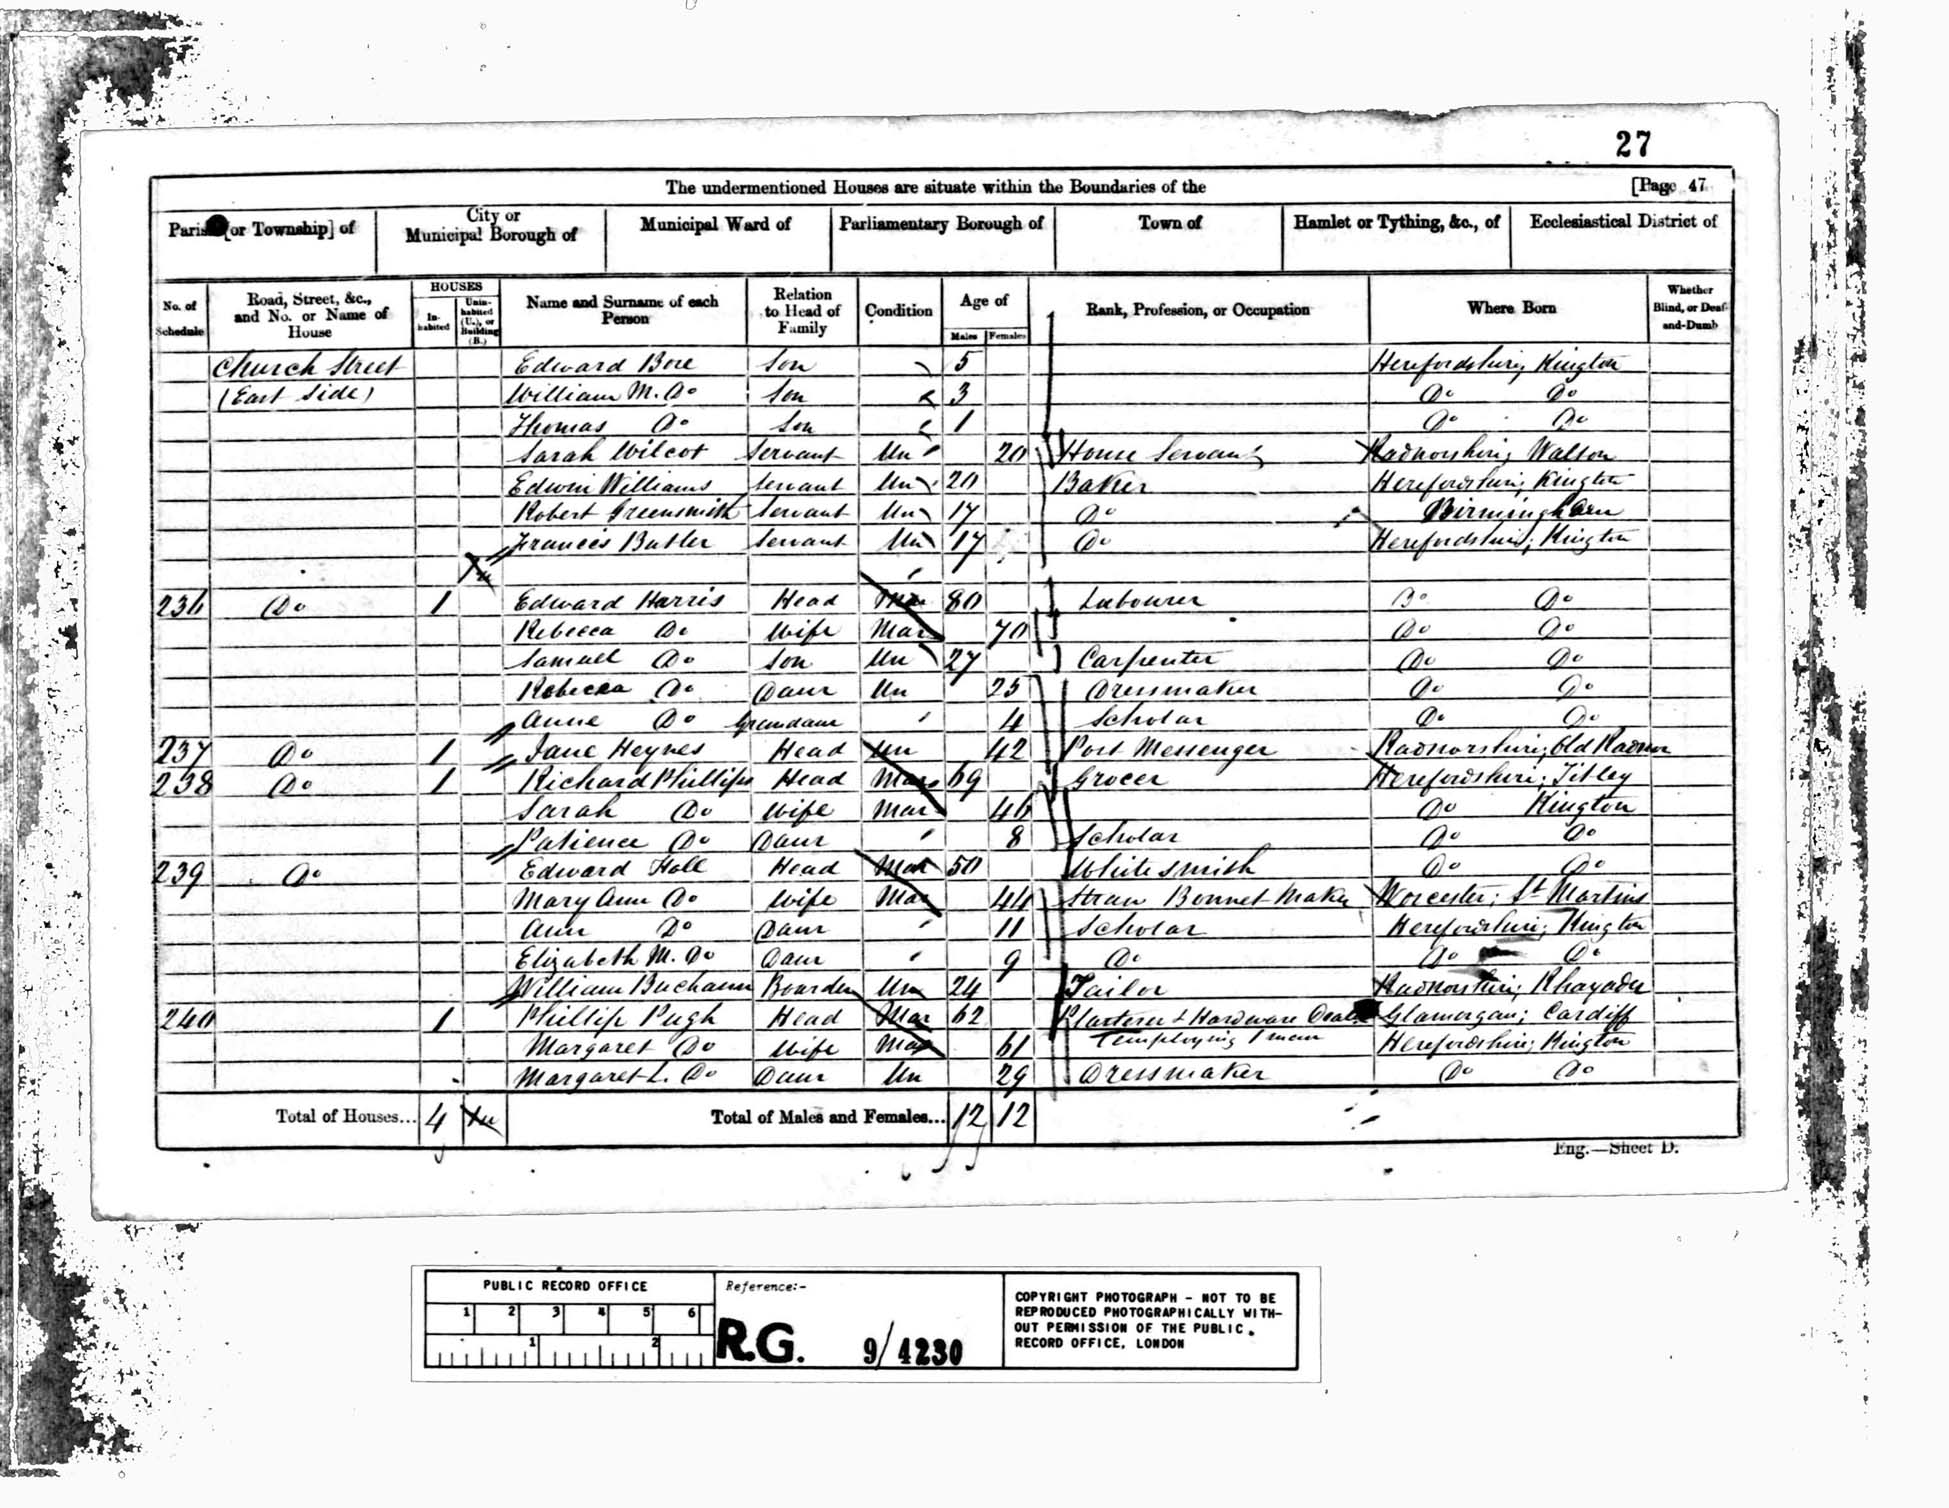 27
The undermentioned Houses are situate within the Boundaries of the [Page 47
Paris [or Township] of City or Municipal Borough of Municipal Ward of Parliamentary Borough of Town of Hamlet or Tything, &c., of Ecclesiastical District of
No. of Schedule Road, Street, &c., and No. or Name of House HOUSES In-habited Unin-habited (U.), or Building (B.) Name and Surname of each Person Relation to Head of Family Condition Age of Males Females Rank, Profession, or Occupation Where Born Whether Blind, or Deaf-and-Dumb
Church Street Edward Bore Son 5 Herefordshire; Kington
(East Side) William M. Do Son 3 Do Do
Thomas Do Son 1 Do Do
Sarah Wilcot Servant Un 20 House Servant Radnorshire; Walton
Edwin Williams Servant Un 20 Baker Herefordshire; Kington
Robert Greensmith Servant Un 17 Do Birmingham
Frances Butler Servant Un 17 Do Herefordshire; Kington
236 Do 1 Edward Harris Head Mar 80 Labourer Do Do
Rebecca Do Wife Mar 70 Do Do
Samuel Do Son Un 27 Carpenter Do Do
Rebecca Do Daur Un 25 Dressmaker Do Do
Anne Do Grandaur 4 Scholar Do Do
237 Do 1 Jane Heynes Head Un 42 Post Messenger Radnorshire; Old Radnor
238 Do 1 Richard Phillips Head Mar 69 Grocer Herefordshire; Titley
Sarah Do Wife Mar 46 Do Kington
Patience Do Daur 8 Scholar Do Do
239 Do Edward Hall Head Mar 50 Whitesmith Do Do
Mary Ann Do Wife Mar 44 Straw Bonnet Maker Worcester; St Martins
Ann Do Daur 11 Scholar Herefordshire; Kington
Elizabeth M. Do Daur 9 Do Do Do
William Buchanan Boarder Un 24 Tailor Radnorshire; Rhayader
240 1 Phillip Pugh Head Mar 62 Plasterer & Hardware Deal Glamorgan; Cardiff
Margaret Do Wife Mar 61 employing 1 man Herefordshire; Kington
Margaret L. Do Daur Un 29 Dressmaker Do Do
Total of Houses... 4 Total of Males and Females... 12 12
Eng.—Sheet D.
PUBLIC RECORD OFFICE
1 2 3 4 5 6
1 2
Reference:-
R.G. 9/4230
COPYRIGHT PHOTOGRAPH - NOT TO BE
REPRODUCED PHOTOGRAPHICALLY WITH-
OUT PERMISSION OF THE PUBLIC
RECORD OFFICE, LONDON